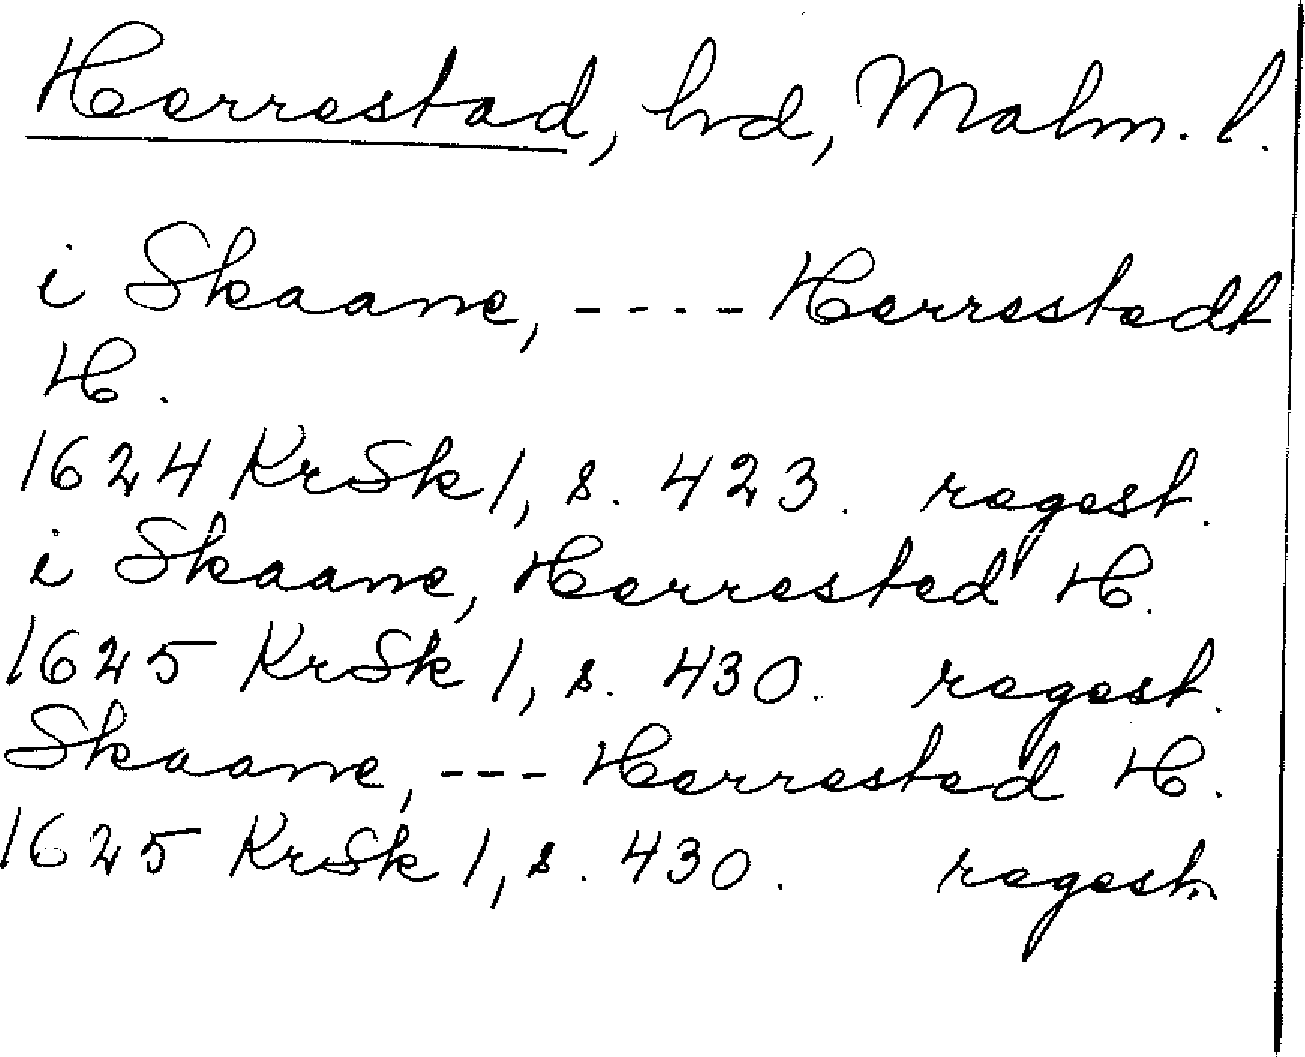 Herrestad, hrd, Malm. l.
i Skaane, ---- Herrestedt
H.
1624 KrSk 1, s. 423. regest.
i Skaane, Herrested H.
1625 KrSk 1, s. 430. regest.
Skaane, --- Herrested H.
1625 KrSk 1, s. 430. regest.